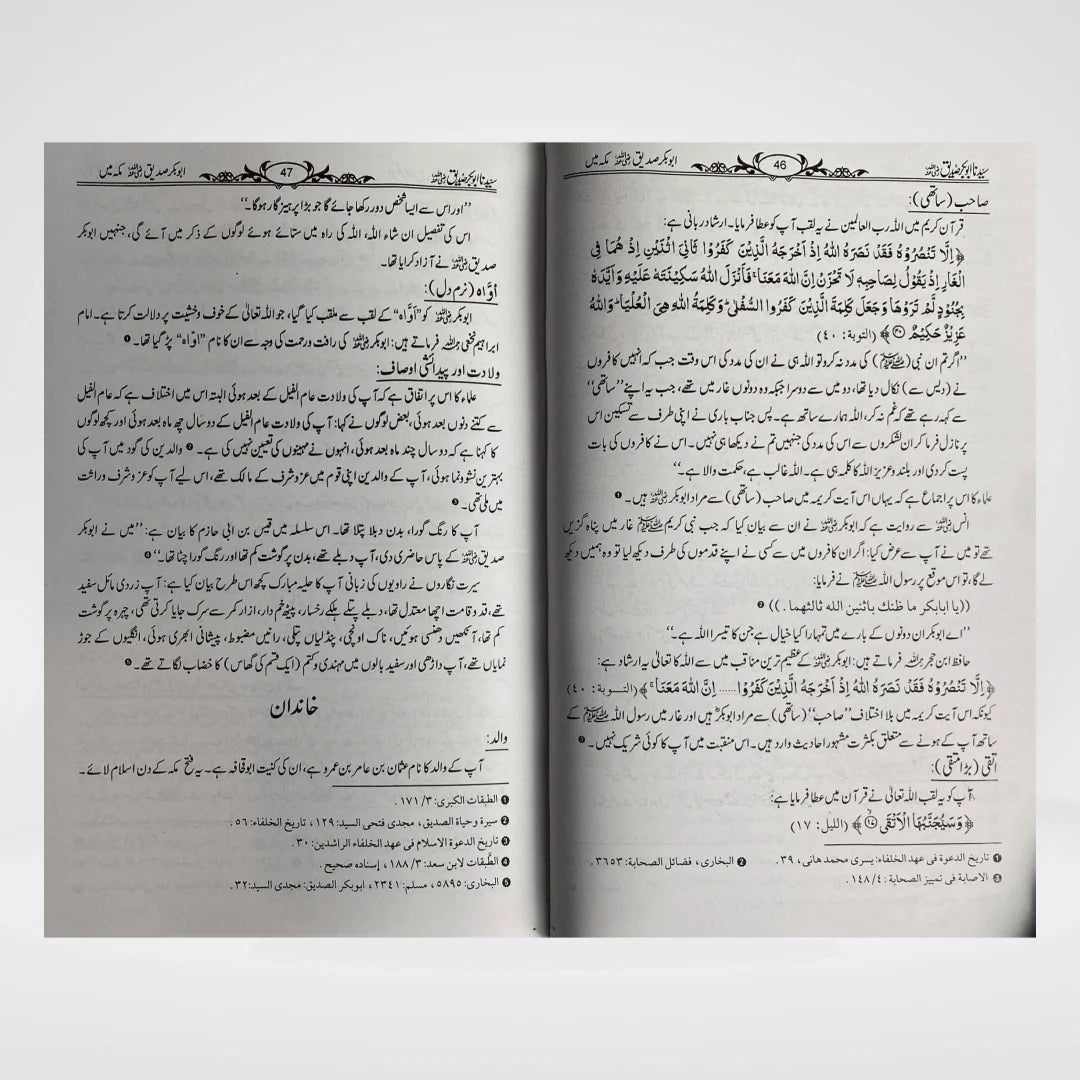 سیدنا ابوبکر صدیق رضی اللہ عنہ 46 ابوبکر صدیق رضی اللہ عنہ مکہ میں
صاحب (ساتھی):
قرآن کریم میں اللہ رب العالمین نے یہ لقب آپ کو عطا فرمایا۔ ارشاد ربانی ہے:
﴿اِلَّا تَنْصُرُوْهُ فَقَدْ نَصَرَهُ اللّٰهُ اِذْ اَخْرَجَهُ الَّذِيْنَ كَفَرُوْا ثَانِيَ اثْنَيْنِ اِذْ هُمَا فِي
الْغَارِ اِذْ يَقُوْلُ لِصَاحِبِهٖ لَا تَحْزَنْ اِنَّ اللّٰهَ مَعَنَا ۚ فَاَنْزَلَ اللّٰهُ سَكِيْنَتَهٗ عَلَيْهِ وَاَيَّدَهٗ
بِجُنُوْدٍ لَّمْ تَرَوْهَا وَجَعَلَ كَلِمَةَ الَّذِيْنَ كَفَرُوا السُّفْلٰى ؕ وَكَلِمَةُ اللّٰهِ هِيَ الْعُلْيَا ؕ وَاللّٰهُ
عَزِيْزٌ حَكِيْمٌ ﴾ (التوبة: ٤٠)
’’اگر تم ان نبی (ﷺ) کی مدد نہ کرو تو اللہ ہی نے ان کی مدد کی اس وقت جب کہ انہیں کافروں
نے (دیس سے) نکال دیا تھا، دو میں سے دوسرا جبکہ وہ دونوں غار میں تھے، جب یہ اپنے ’’ساتھی‘‘
سے کہہ رہے تھے کہ غم نہ کر، اللہ ہمارے ساتھ ہے۔ پس جناب باری نے اپنی طرف سے تسکین اس
پر نازل فرما کر ان لشکروں سے اس کی مدد کی جنہیں تم نے دیکھا ہی نہیں۔ اس نے کافروں کی بات
پست کر دی اور بلند و عزیز اللہ کا کلمہ ہی ہے۔ اللہ غالب ہے، حکمت والا ہے۔‘‘
علماء کا اس پر اجماع ہے کہ یہاں اس آیت کریمہ میں صاحب (ساتھی) سے مراد ابوبکر رضی اللہ عنہ ہیں۔ ❶
انس رضی اللہ عنہ سے روایت ہے کہ ابوبکر رضی اللہ عنہ نے ان سے بیان کیا کہ جب نبی کریم ﷺ غار میں پناہ گزیں
تھے تو میں نے آپ سے عرض کیا: اگر ان کافروں میں سے کسی نے اپنے قدموں کی طرف دیکھ لیا تو وہ ہمیں دیکھ
لے گا، تو اس موقع پر رسول اللہ ﷺ نے فرمایا:
((يا ابابكر ما ظنك باثنين الله ثالثهما .)) ❷
’’اے ابوبکر ان دونوں کے بارے میں تمہارا کیا خیال ہے جن کا تیسرا اللہ ہے۔‘‘
حافظ ابن حجر رحمہ اللہ فرماتے ہیں: ابوبکر رضی اللہ عنہ کے عظیم ترین مناقب میں سے اللہ کا تعالیٰ یہ ارشاد ہے:
﴿اِلَّا تَنْصُرُوْهُ فَقَدْ نَصَرَهُ اللّٰهُ اِذْ اَخْرَجَهُ الَّذِيْنَ كَفَرُوْا...... اِنَّ اللّٰهَ مَعَنَا ۚ﴾ (التوبة: ٤٠)
کیونکہ اس آیت کریمہ میں بلا اختلاف ’’صاحب‘‘ (ساتھی) سے مراد ابوبکرؓ ہیں اور غار میں رسول اللہ ﷺ کے
ساتھ آپ کے ہونے سے متعلق بکثرت مشہور احادیث وارد ہیں۔ اس منقبت میں آپ کا کوئی شریک نہیں۔ ❸
اتقی (بڑا متقی):
آپ کو یہ لقب اللہ تعالیٰ نے قرآن میں عطا فرمایا ہے:
﴿وَسَيُجَنَّبُهَا الْاَتْقَى ﴾ (الليل: ١٧)
❶ تاريخ الدعوة فى عهد الخلفاء: يسرى محمد هانى، ٣٩. ❷ البخارى، فضائل الصحابة: ٣٦٥٣.
❸ الاصابة فى تمييز الصحابة: ٤/ ١٤٨.
سیدنا ابوبکر صدیق رضی اللہ عنہ 47 ابوبکر صدیق رضی اللہ عنہ مکہ میں
’’اور اس سے ایسا شخص دور رکھا جائے گا جو بڑا پرہیز گار ہوگا۔‘‘
اس کی تفصیل ان شاء اللہ، اللہ کی راہ میں ستائے ہوئے لوگوں کے ذکر میں آئے گی، جنہیں ابوبکر
صدیق رضی اللہ عنہ نے آزاد کرایا تھا۔
اوّاہ (نرم دل):
ابوبکر رضی اللہ عنہ کو ’’اوّاہ‘‘ کے لقب سے ملقب کیا گیا، جو اللہ تعالیٰ کے خوف و خشیت پر دلالت کرتا ہے۔ امام
ابراہیم نخعی رحمہ اللہ فرماتے ہیں: ابوبکر رضی اللہ عنہ کی رافت و رحمت کی وجہ سے ان کا نام ’’اوّاہ‘‘ پڑ گیا تھا۔ ❶
ولادت اور پیدائشی اوصاف:
علماء کا اس پر اتفاق ہے کہ آپ کی ولادت عام الفیل کے بعد ہوئی البتہ اس میں اختلاف ہے کہ عام الفیل
سے کتنے دنوں بعد ہوئی، بعض لوگوں نے کہا: آپ کی ولادت عام الفیل کے دو سال چھ ماہ بعد ہوئی اور کچھ لوگوں
کا کہنا ہے کہ دو سال چند ماہ بعد ہوئی، انہوں نے مہینوں کی تعیین نہیں کی ہے۔ ❷ والدین کی گود میں آپ کی
بہترین نشوونما ہوئی، آپ کے والدین اپنی قوم میں عز و شرف کے مالک تھے، اس لیے آپ کو عز و شرف وراثت
میں ملی تھی۔ ❸
آپ کا رنگ گورا، بدن دبلا پتلا تھا۔ اس سلسلہ میں قیس بن ابی حازم کا بیان ہے: ’’میں نے ابوبکر
صدیق رضی اللہ عنہ کے پاس حاضری دی، آپ دبلے تھے، بدن پر گوشت کم تھا اور رنگ گورا چٹا تھا۔‘‘ ❹
سیرت نگاروں نے راویوں کی زبانی آپ کا حلیہ مبارک کچھ اس طرح بیان کیا ہے: آپ زردی مائل سفید
تھے، قد و قامت اچھا معتدل تھا، دبلے پتلے ہلکے رخسار، پیٹھ خم دار، ازار کمر سے سرک جایا کرتی تھی، چہرہ پر گوشت
کم تھا، آنکھیں دھنسی ہوئیں، ناک اونچی، پنڈلیاں پتلی، رانیں مضبوط، پیشانی ابھری ہوئی، انگلیوں کے جوڑ
نمایاں تھے، آپ داڑھی اور سفید بالوں میں مہندی و کتم (ایک قسم کی گھاس) کا خضاب لگاتے تھے۔ ❺
خاندان
والد:
آپ کے والد کا نام عثمان بن عامر بن عمرو ہے، ان کی کنیت ابوقحافہ ہے۔ یہ فتح مکہ کے دن اسلام لائے۔
❶ الطبقات الكبرى: ٣/ ١٧١.
❷ سيرة وحياة الصديق، مجدى فتحى السيد: ١٢٩، تاريخ الخلفاء: ٥٦.
❸ تاريخ الدعوة الاسلام فى عهد الخلفاء الراشدين: ٣٠.
❹ الطبقات لابن سعد: ٣/ ١٨٨، إسناده صحيح.
❺ البخارى: ٥٨٩٥، مسلم: ٢٣٤١، ابوبكر الصديق: مجدى السيد: ٣٢.